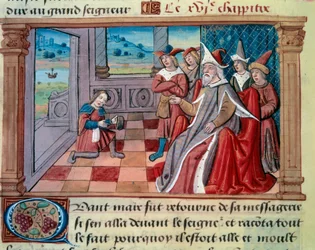 dux au grand seigneur Le xvj.e chappitre
Quant maire fut retourne de sa messagerie
si sen alla devant le seigne.r et racota tout
le fait pourquoy il estoit alle et moult